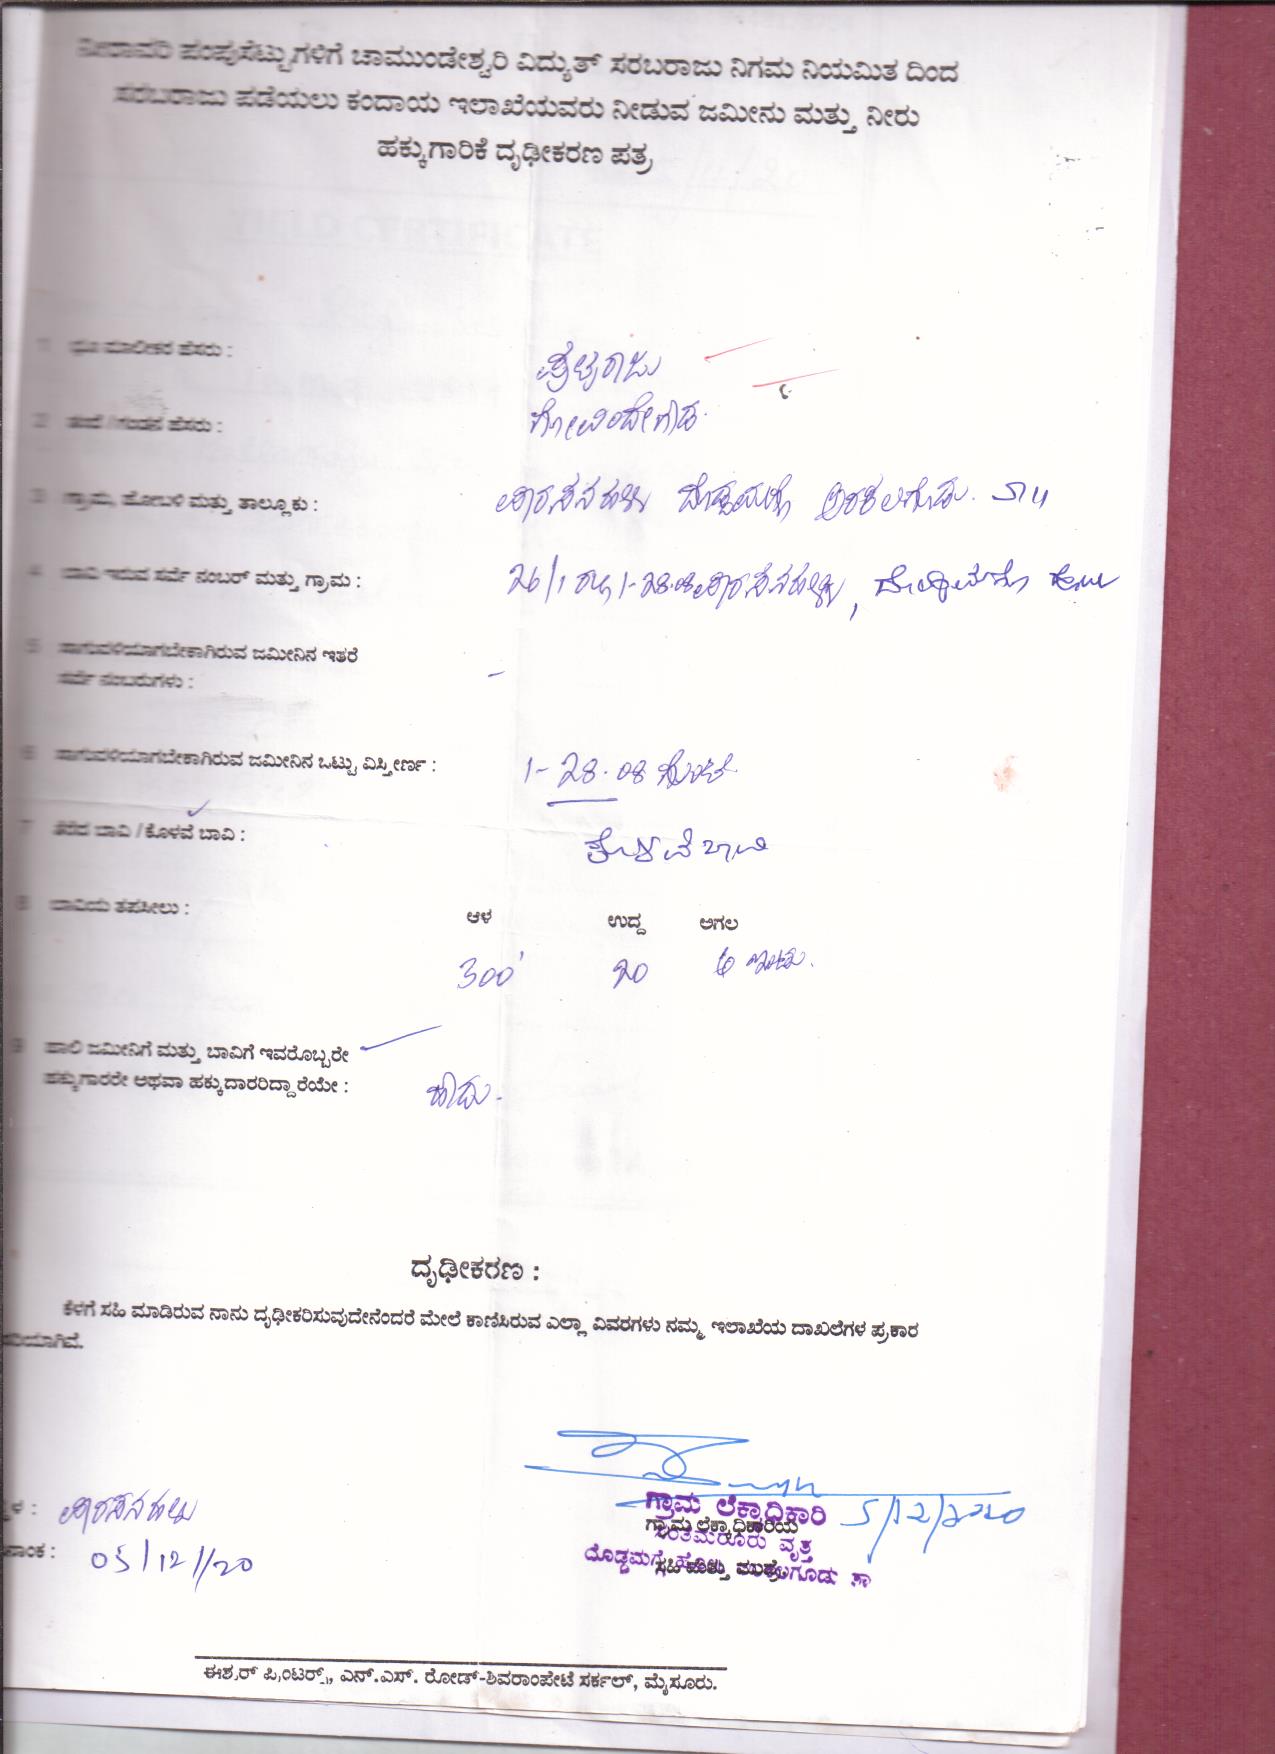 ನೀರಾವರಿ ಪಂಪುಸೆಟ್ಟುಗಳಿಗೆ ಚಾಮುಂಡೇಶ್ವರಿ ವಿದ್ಯುತ್ ಸರಬರಾಜು ನಿಗಮ ನಿಯಮಿತ ದಿಂದ
ಸರಬರಾಜು ಪಡೆಯಲು ಕಂದಾಯ ಇಲಾಖೆಯವರು ನೀಡುವ ಜಮೀನು ಮತ್ತು ನೀರು
ಹಕ್ಕುಗಾರಿಕೆ ದೃಢೀಕರಣ ಪತ್ರ
YIELD CERTIFICATE
1 ಭೂ ಮಾಲೀಕರ ಹೆಸರು :
2 ತಂದೆ / ಗಂಡನ ಹೆಸರು : ಗೋವಿಂದೇಗೌಡ.
3 ಗ್ರಾಮ, ಹೋಬಳಿ ಮತ್ತು ತಾಲ್ಲೂಕು : ದೊಡ್ಡಮಗ್ಗೆ ಅರಕಲಗೂಡು
4 ಬಾವಿ ಇರುವ ಸರ್ವೆ ನಂಬರ್ ಮತ್ತು ಗ್ರಾಮ : 26/1 1-28.08
5 ಸಾಗುವಳಿಯಾಗಬೇಕಾಗಿರುವ ಜಮೀನಿನ ಇತರೆ
ಸರ್ವೆ ನಂಬರುಗಳು : -
6 ಸಾಗುವಳಿಯಾಗಬೇಕಾಗಿರುವ ಜಮೀನಿನ ಒಟ್ಟು ವಿಸ್ತೀರ್ಣ : 1-28.08 ಗುಂಟೆ
7 ತೆರೆದ ಬಾವಿ / ಕೊಳವೆ ಬಾವಿ : ಕೊಳವೆ ಬಾವಿ
8 ಬಾವಿಯ ತಪಸೀಲು : ಆಳ ಉದ್ದ ಅಗಲ
300' 20 6 ಇಂಚು.
9 ಹಾಲಿ ಜಮೀನಿಗೆ ಮತ್ತು ಬಾವಿಗೆ ಇವರೊಬ್ಬರೇ
ಹಕ್ಕುಗಾರರೇ ಅಥವಾ ಹಕ್ಕುದಾರರಿದ್ದಾರೆಯೇ : ಹೌದು.
ದೃಢೀಕರಣ :
ಕೆಳಗೆ ಸಹಿ ಮಾಡಿರುವ ನಾನು ದೃಢೀಕರಿಸುವುದೇನೆಂದರೆ ಮೇಲೆ ಕಾಣಿಸಿರುವ ಎಲ್ಲಾ ವಿವರಗಳು ನಮ್ಮ ಇಲಾಖೆಯ ದಾಖಲೆಗಳ ಪ್ರಕಾರ
ಸರಿಯಾಗಿದೆ.
ಗ್ರಾಮ ಲೆಕ್ಕಾಧಿಕಾರಿ 5/12/2020
ಗ್ರಾಮ ಲೆಕ್ಕಾಧಿಕಾರಿಯ
ವೃತ್ತ
ದೊಡ್ಡಮಗ್ಗೆ
ಸಹಿ ಮತ್ತು ಮುದ್ರೆ
05/12/20
ಈಶ್ವರ್ ಪ್ರಿಂಟರ್ಸ್, ಎನ್.ಎಸ್. ರೋಡ್-ಶಿವರಾಂಪೇಟೆ ಸರ್ಕಲ್, ಮೈಸೂರು.